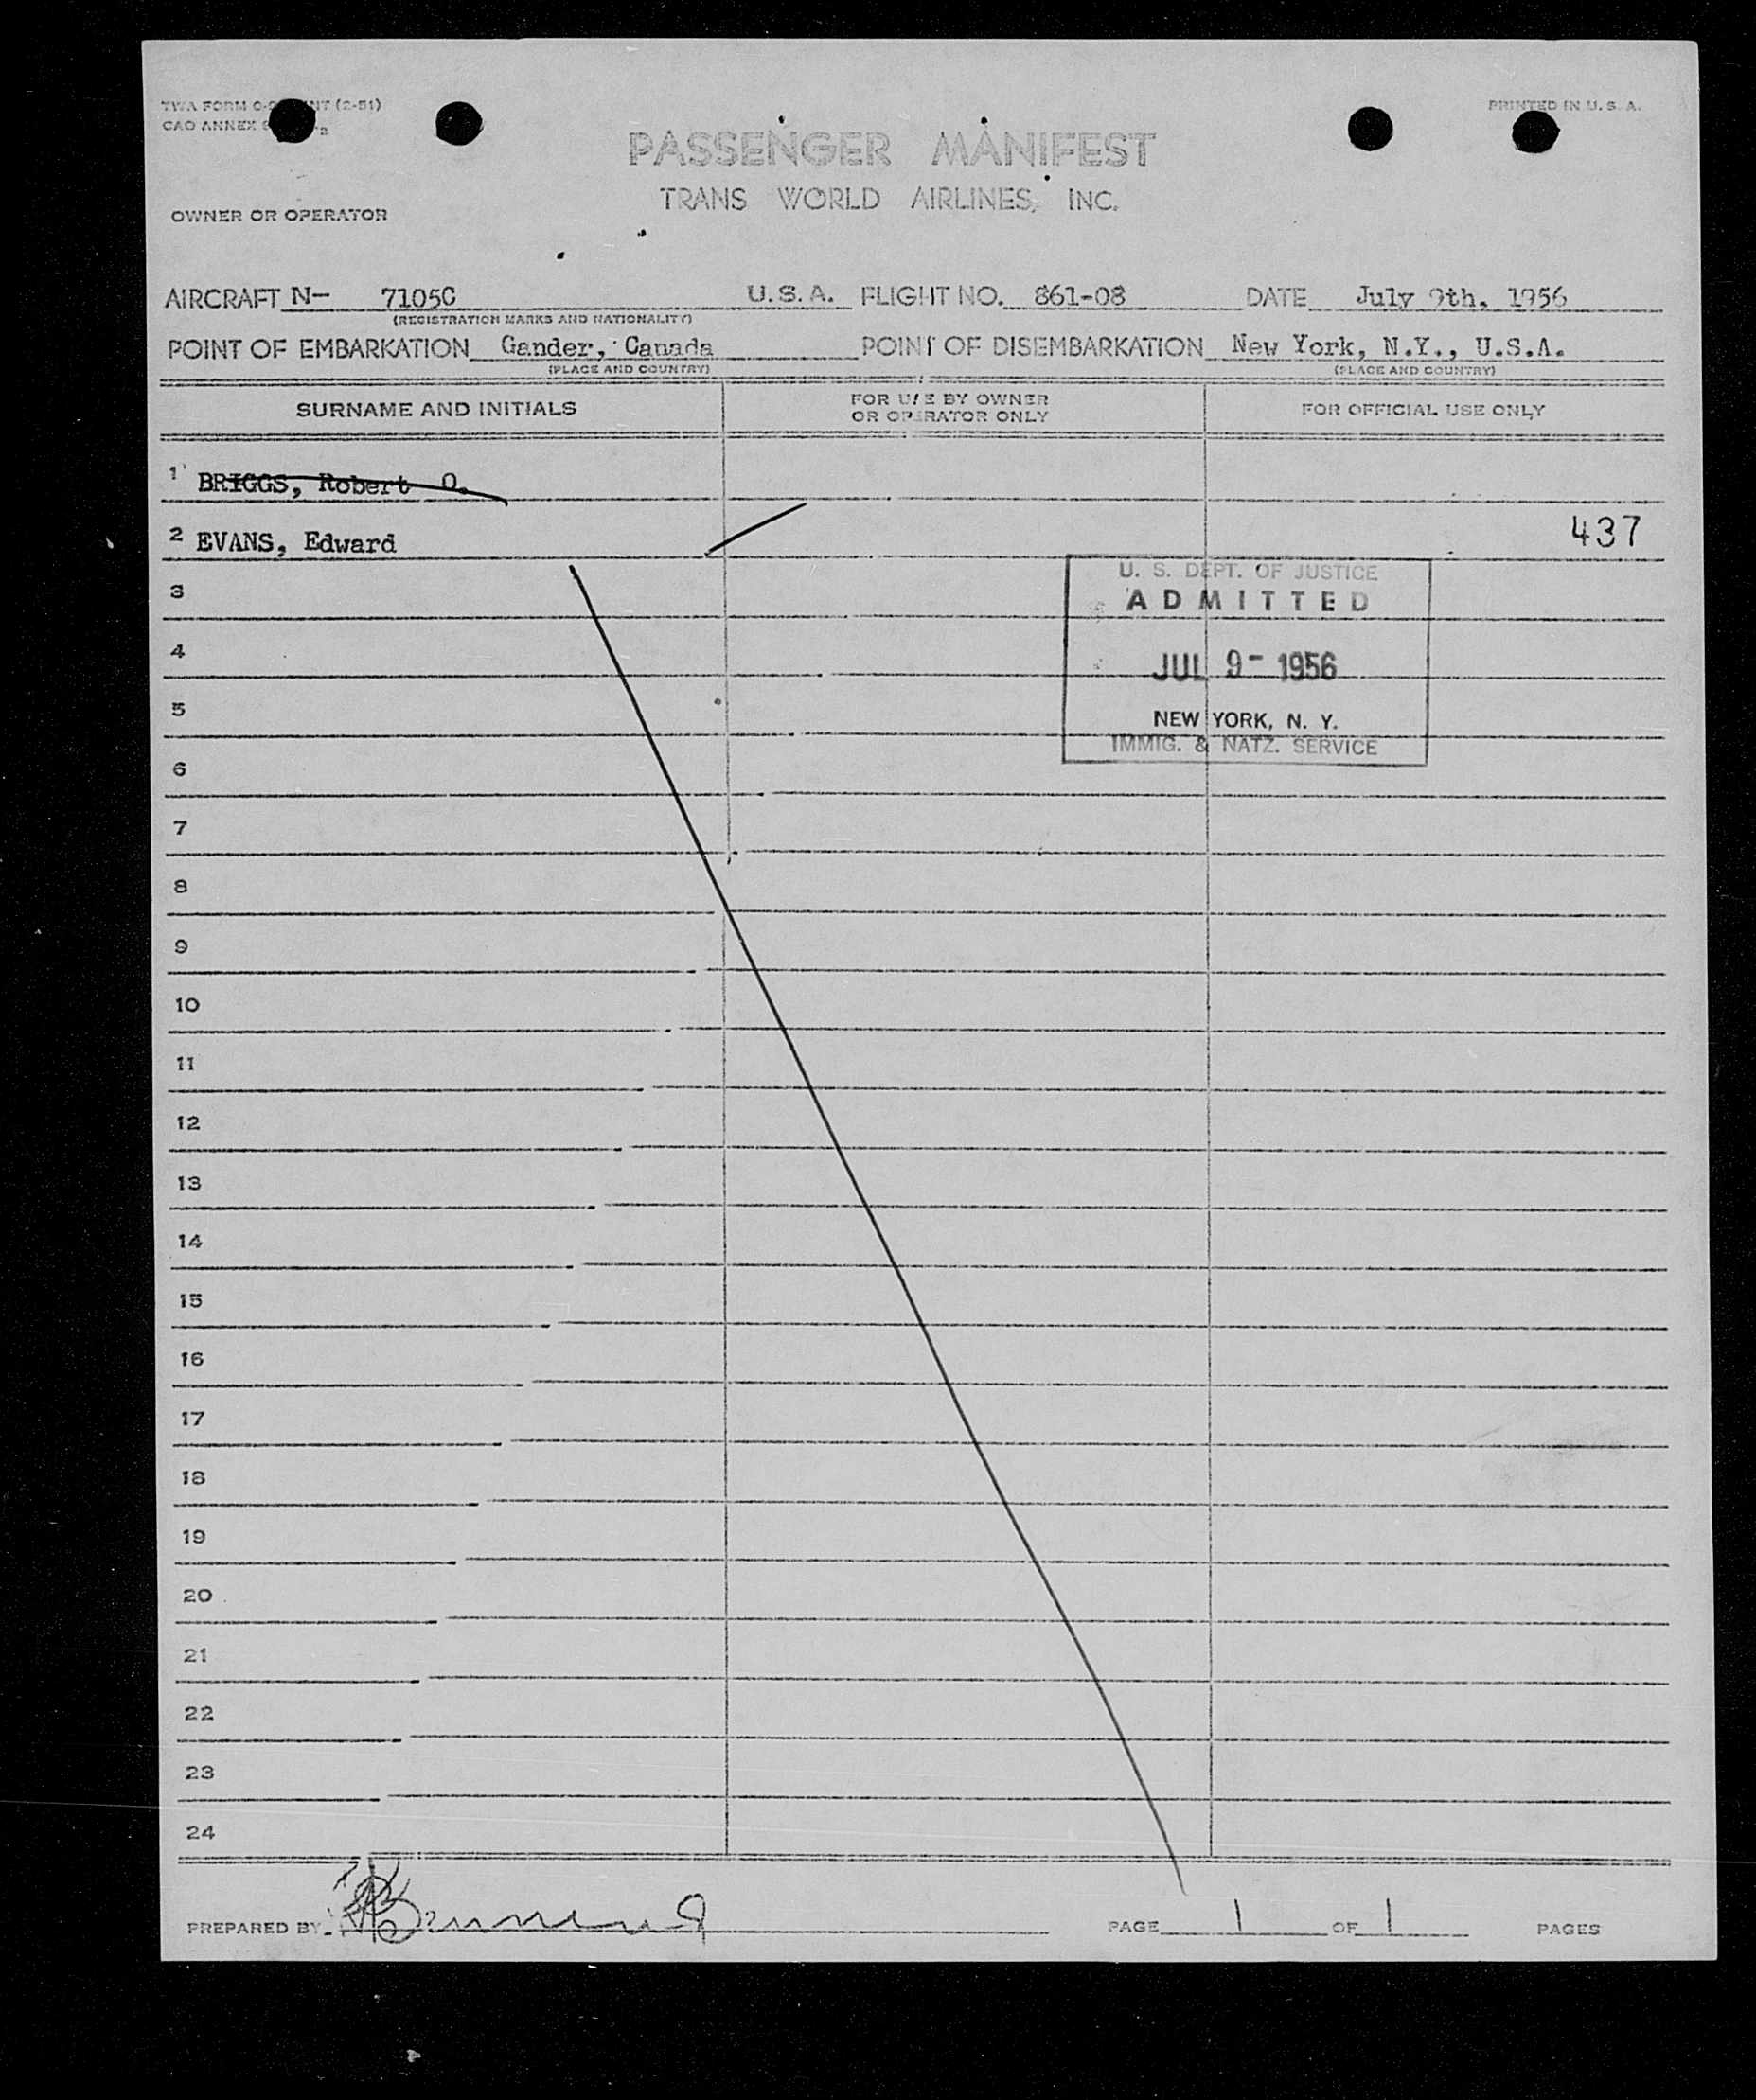 TWA FORM
PRINTED IN U.S.A.
CAO ANNEX
PASSENGER MANIFEST
TRANS WORLD AIRLINES, INC.
OWNER OR OPERATOR
AIRCRAFT N- 7105C U.S.A. FLIGHT NO. 861-08 DATE July 9th, 1956
(REGISTRATION MARKS AND NATIONALITY)
POINT OF EMBARKATION Gander, Canada POINT OF DISEMBARKATION New York, N.Y., U.S.A.
(PLACE AND COUNTRY) (PLACE AND COUNTRY)
SURNAME AND INITIALS FOR USE BY OWNER OR OPERATOR ONLY FOR OFFICIAL USE ONLY
1 BRIGGS, Robert O.
2 EVANS, Edward 437
U. S. DEPT. OF JUSTICE
3
ADMITTED
4
JUL 9- 1956
5
NEW YORK, N. Y.
IMMIG. & NATZ. SERVICE
6
7
8
9
10
11
12
13
14
15
16
17
18
19
20
21
22
23
24
PREPARED BY: PAGE 1 OF 1 PAGES